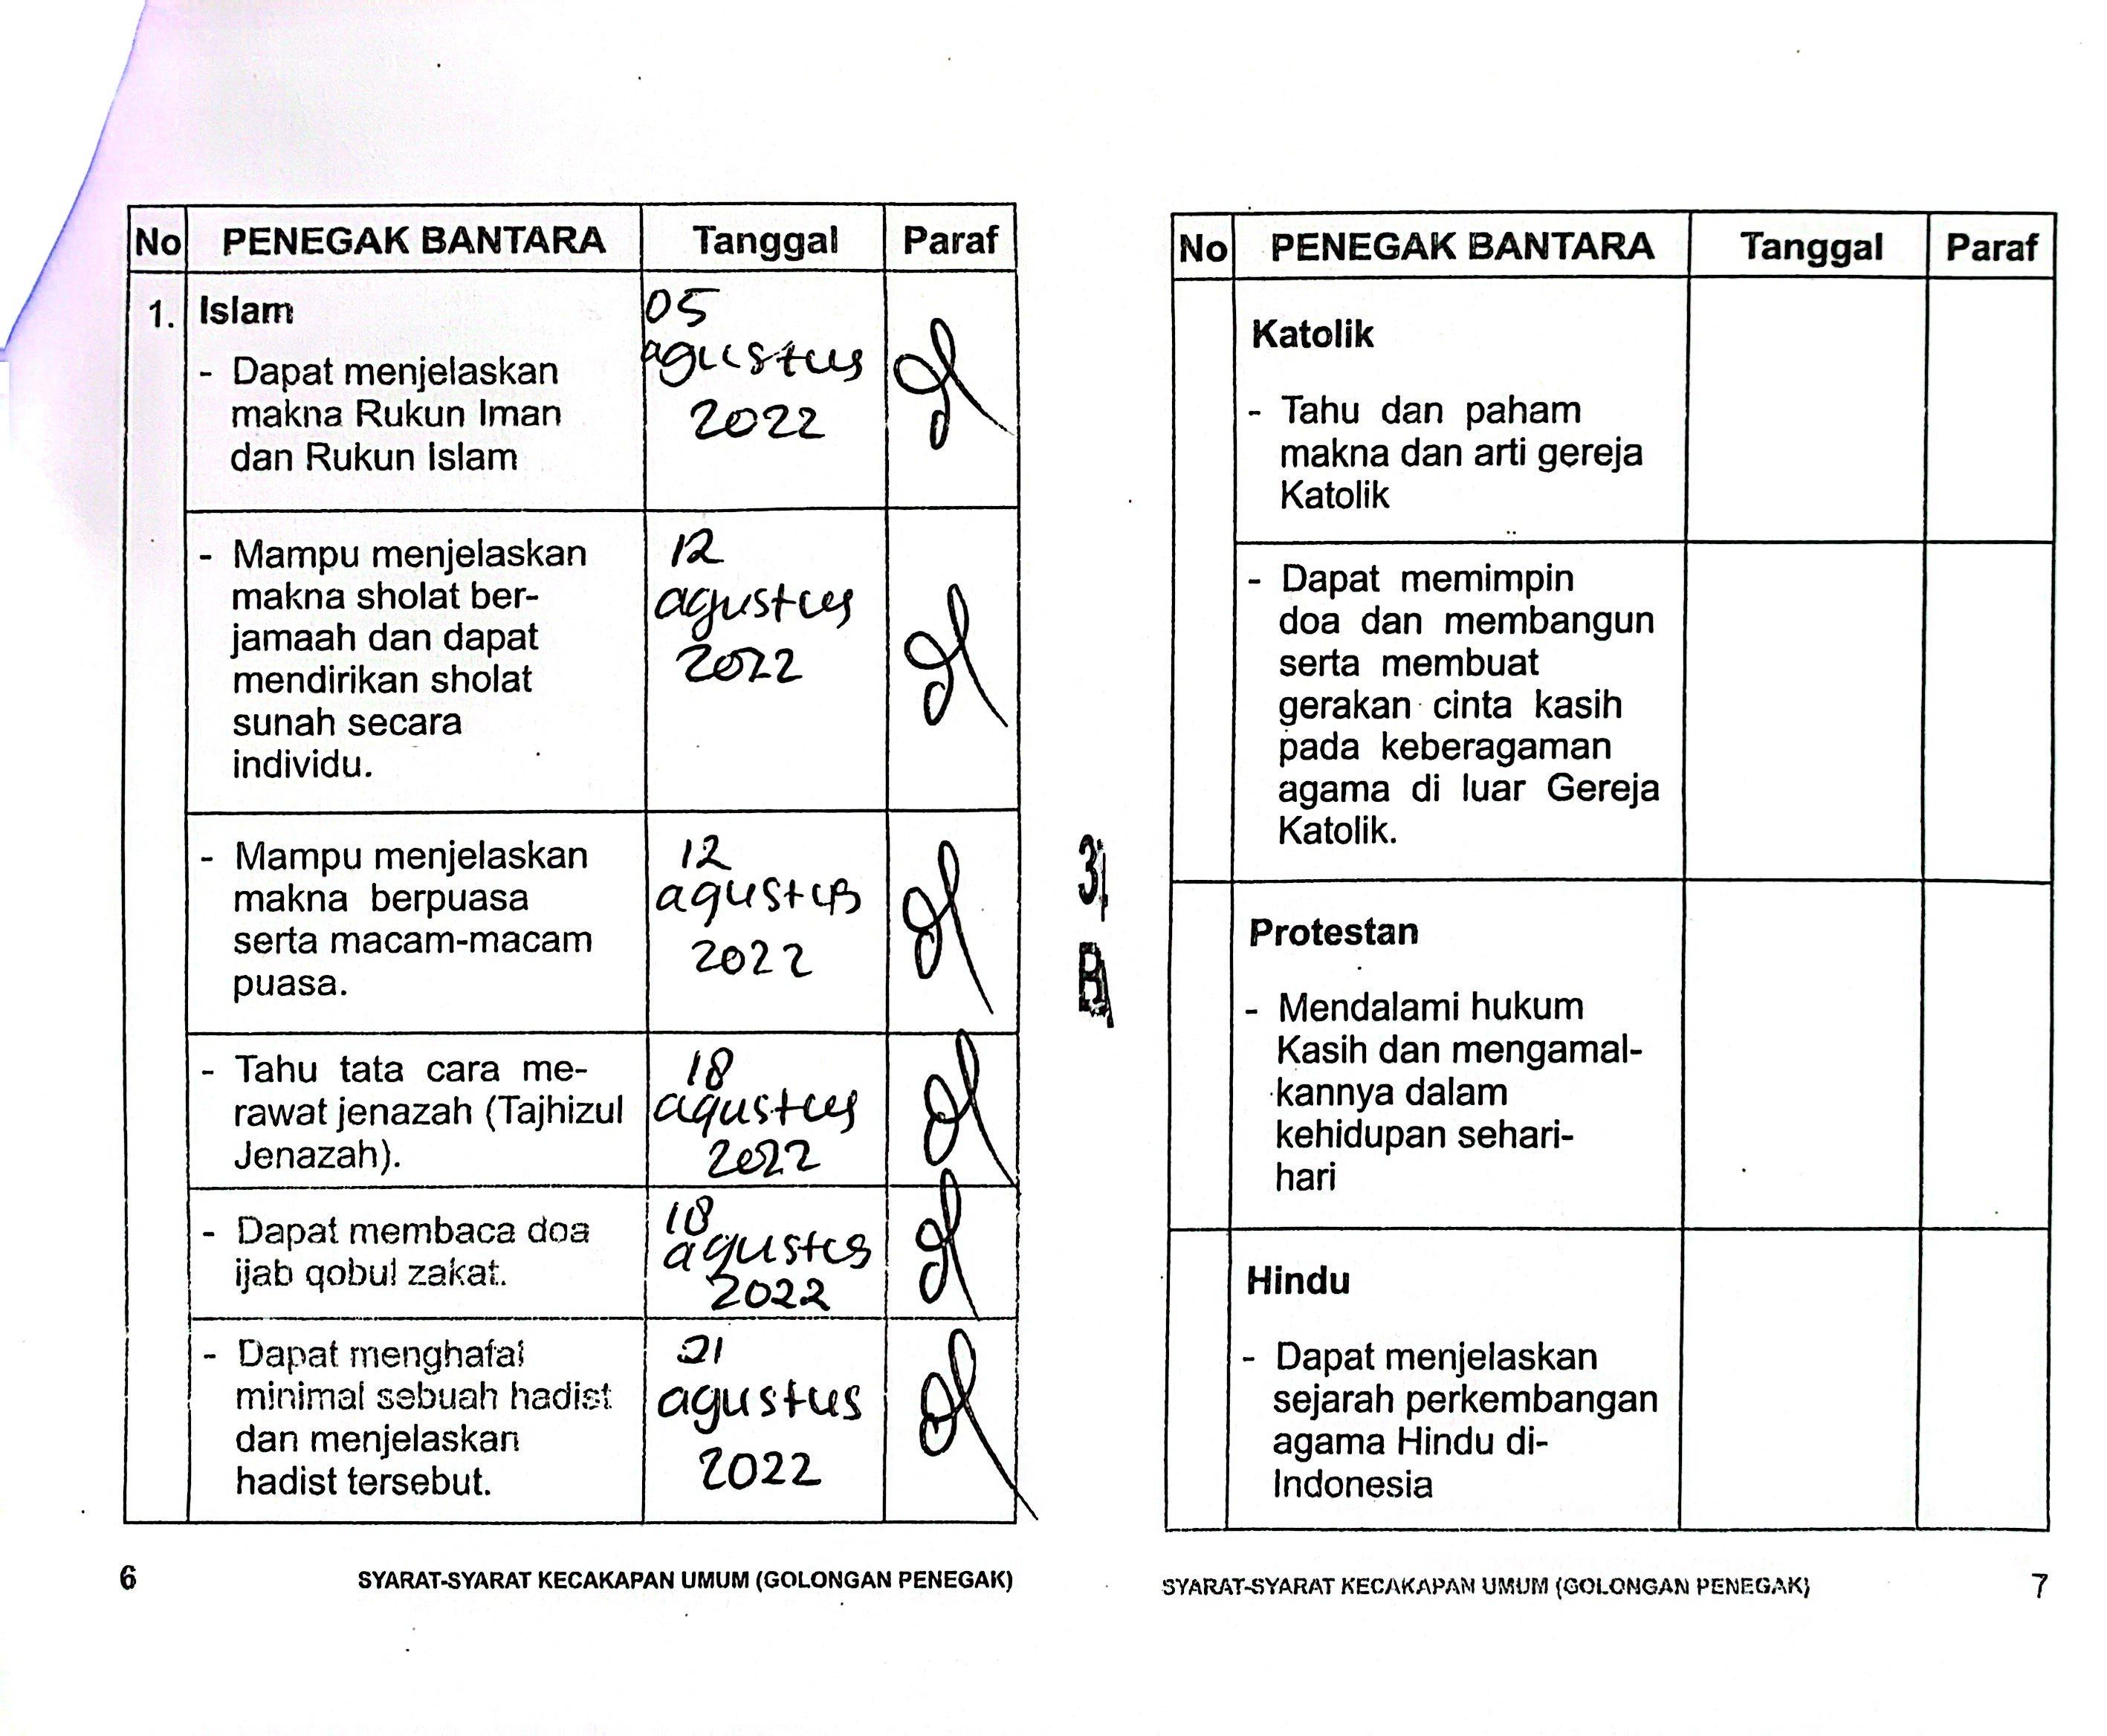 No PENEGAK BANTARA Tanggal Paraf
1. Islam
- Dapat menjelaskan
makna Rukun Iman
dan Rukun Islam
05
agustus
2022
- Mampu menjelaskan
makna sholat ber-
jamaah dan dapat
mendirikan sholat
sunah secara
individu.
12
agustus
2022
- Mampu menjelaskan
makna berpuasa
serta macam-macam
puasa.
12
agustus
2022
- Tahu tata cara me-
rawat jenazah (Tajhizul
Jenazah).
18
agustus
2022
- Dapat membaca doa
ijab qobul zakat.
18
agustus
2022
- Dapat menghafal
minimal sebuah hadist
dan menjelaskan
hadist tersebut.
21
agustus
2022
6 SYARAT-SYARAT KECAKAPAN UMUM (GOLONGAN PENEGAK)
No PENEGAK BANTARA Tanggal Paraf
Katolik
- Tahu dan paham
makna dan arti gereja
Katolik
- Dapat memimpin
doa dan membangun
serta membuat
gerakan cinta kasih
pada keberagaman
agama di luar Gereja
Katolik.
Protestan
- Mendalami hukum
Kasih dan mengamal-
kannya dalam
kehidupan sehari-
hari
Hindu
- Dapat menjelaskan
sejarah perkembangan
agama Hindu di-
Indonesia
SYARAT-SYARAT KECAKAPAN UMUM (GOLONGAN PENEGAK) 7